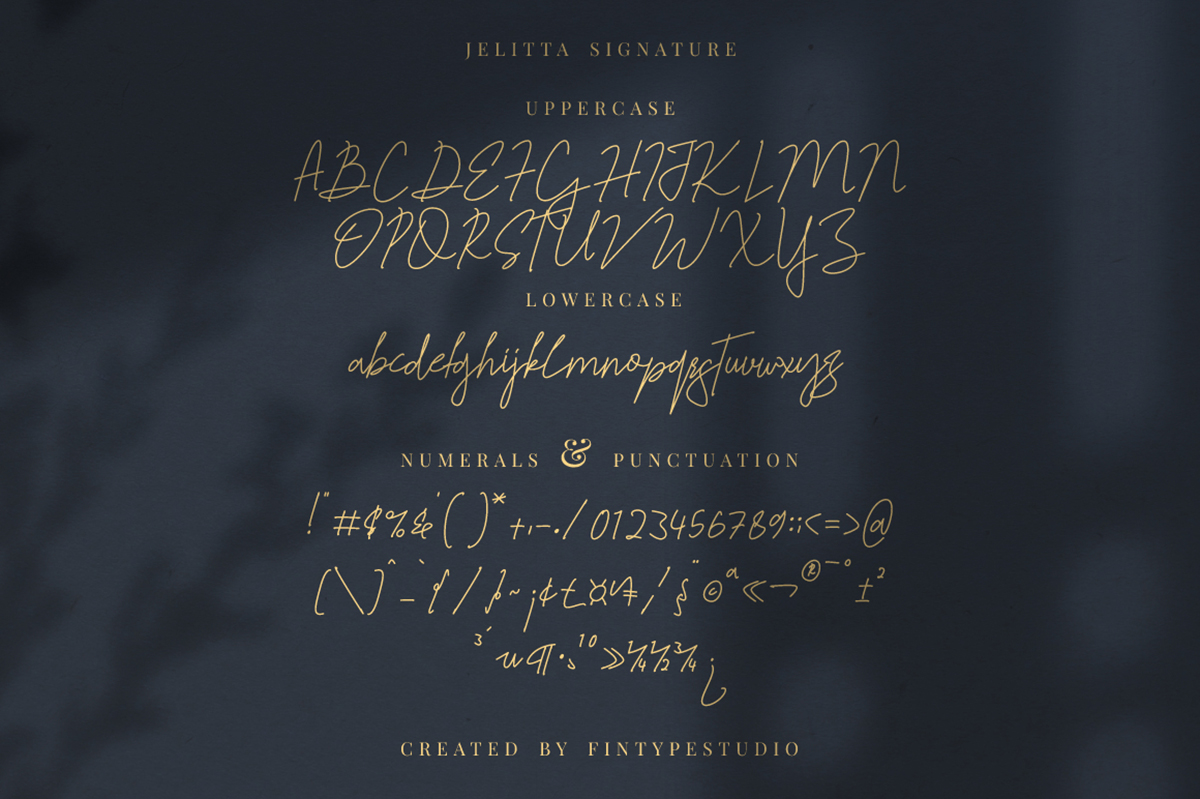 JELITTA SIGNATURE
UPPERCASE
ABCDEFGHIJKLMN
OPQRSTUVWXYZ
LOWERCASE
abcdefghijklmnopqrstuvwxyz
NUMERALS & PUNCTUATION
!"#$%&'()*+,-./0123456789:;<=>@
[\]^_`{/}~¡¢£¤¥¦§¨©ª«¬®¯°±²
³´µ¶·¸¹º»¼½¾¿
CREATED BY FINTYPESTUDIO